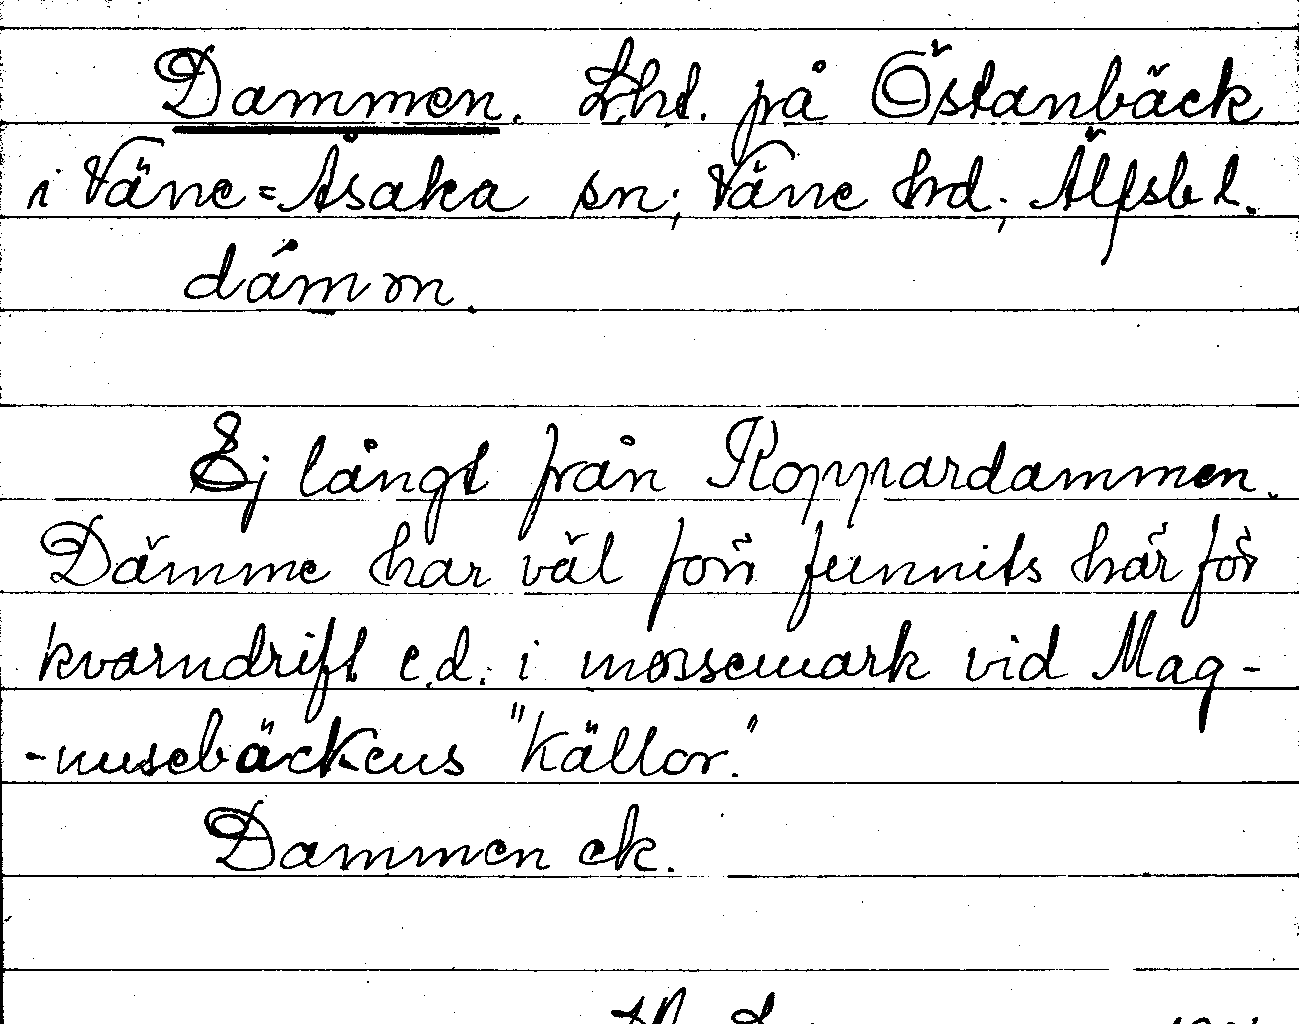 Dammen. Lht. på Östanbäck
i Väne=Åsaka sn; Väne hd; Älfsb l.
dámm.
Ej långt från Roppardammen.
Dämme har väl förr funnits här för
kvarndrift e.d. i mossemark vid Mag-
-nusebäckens "källor."
Dammen ek.